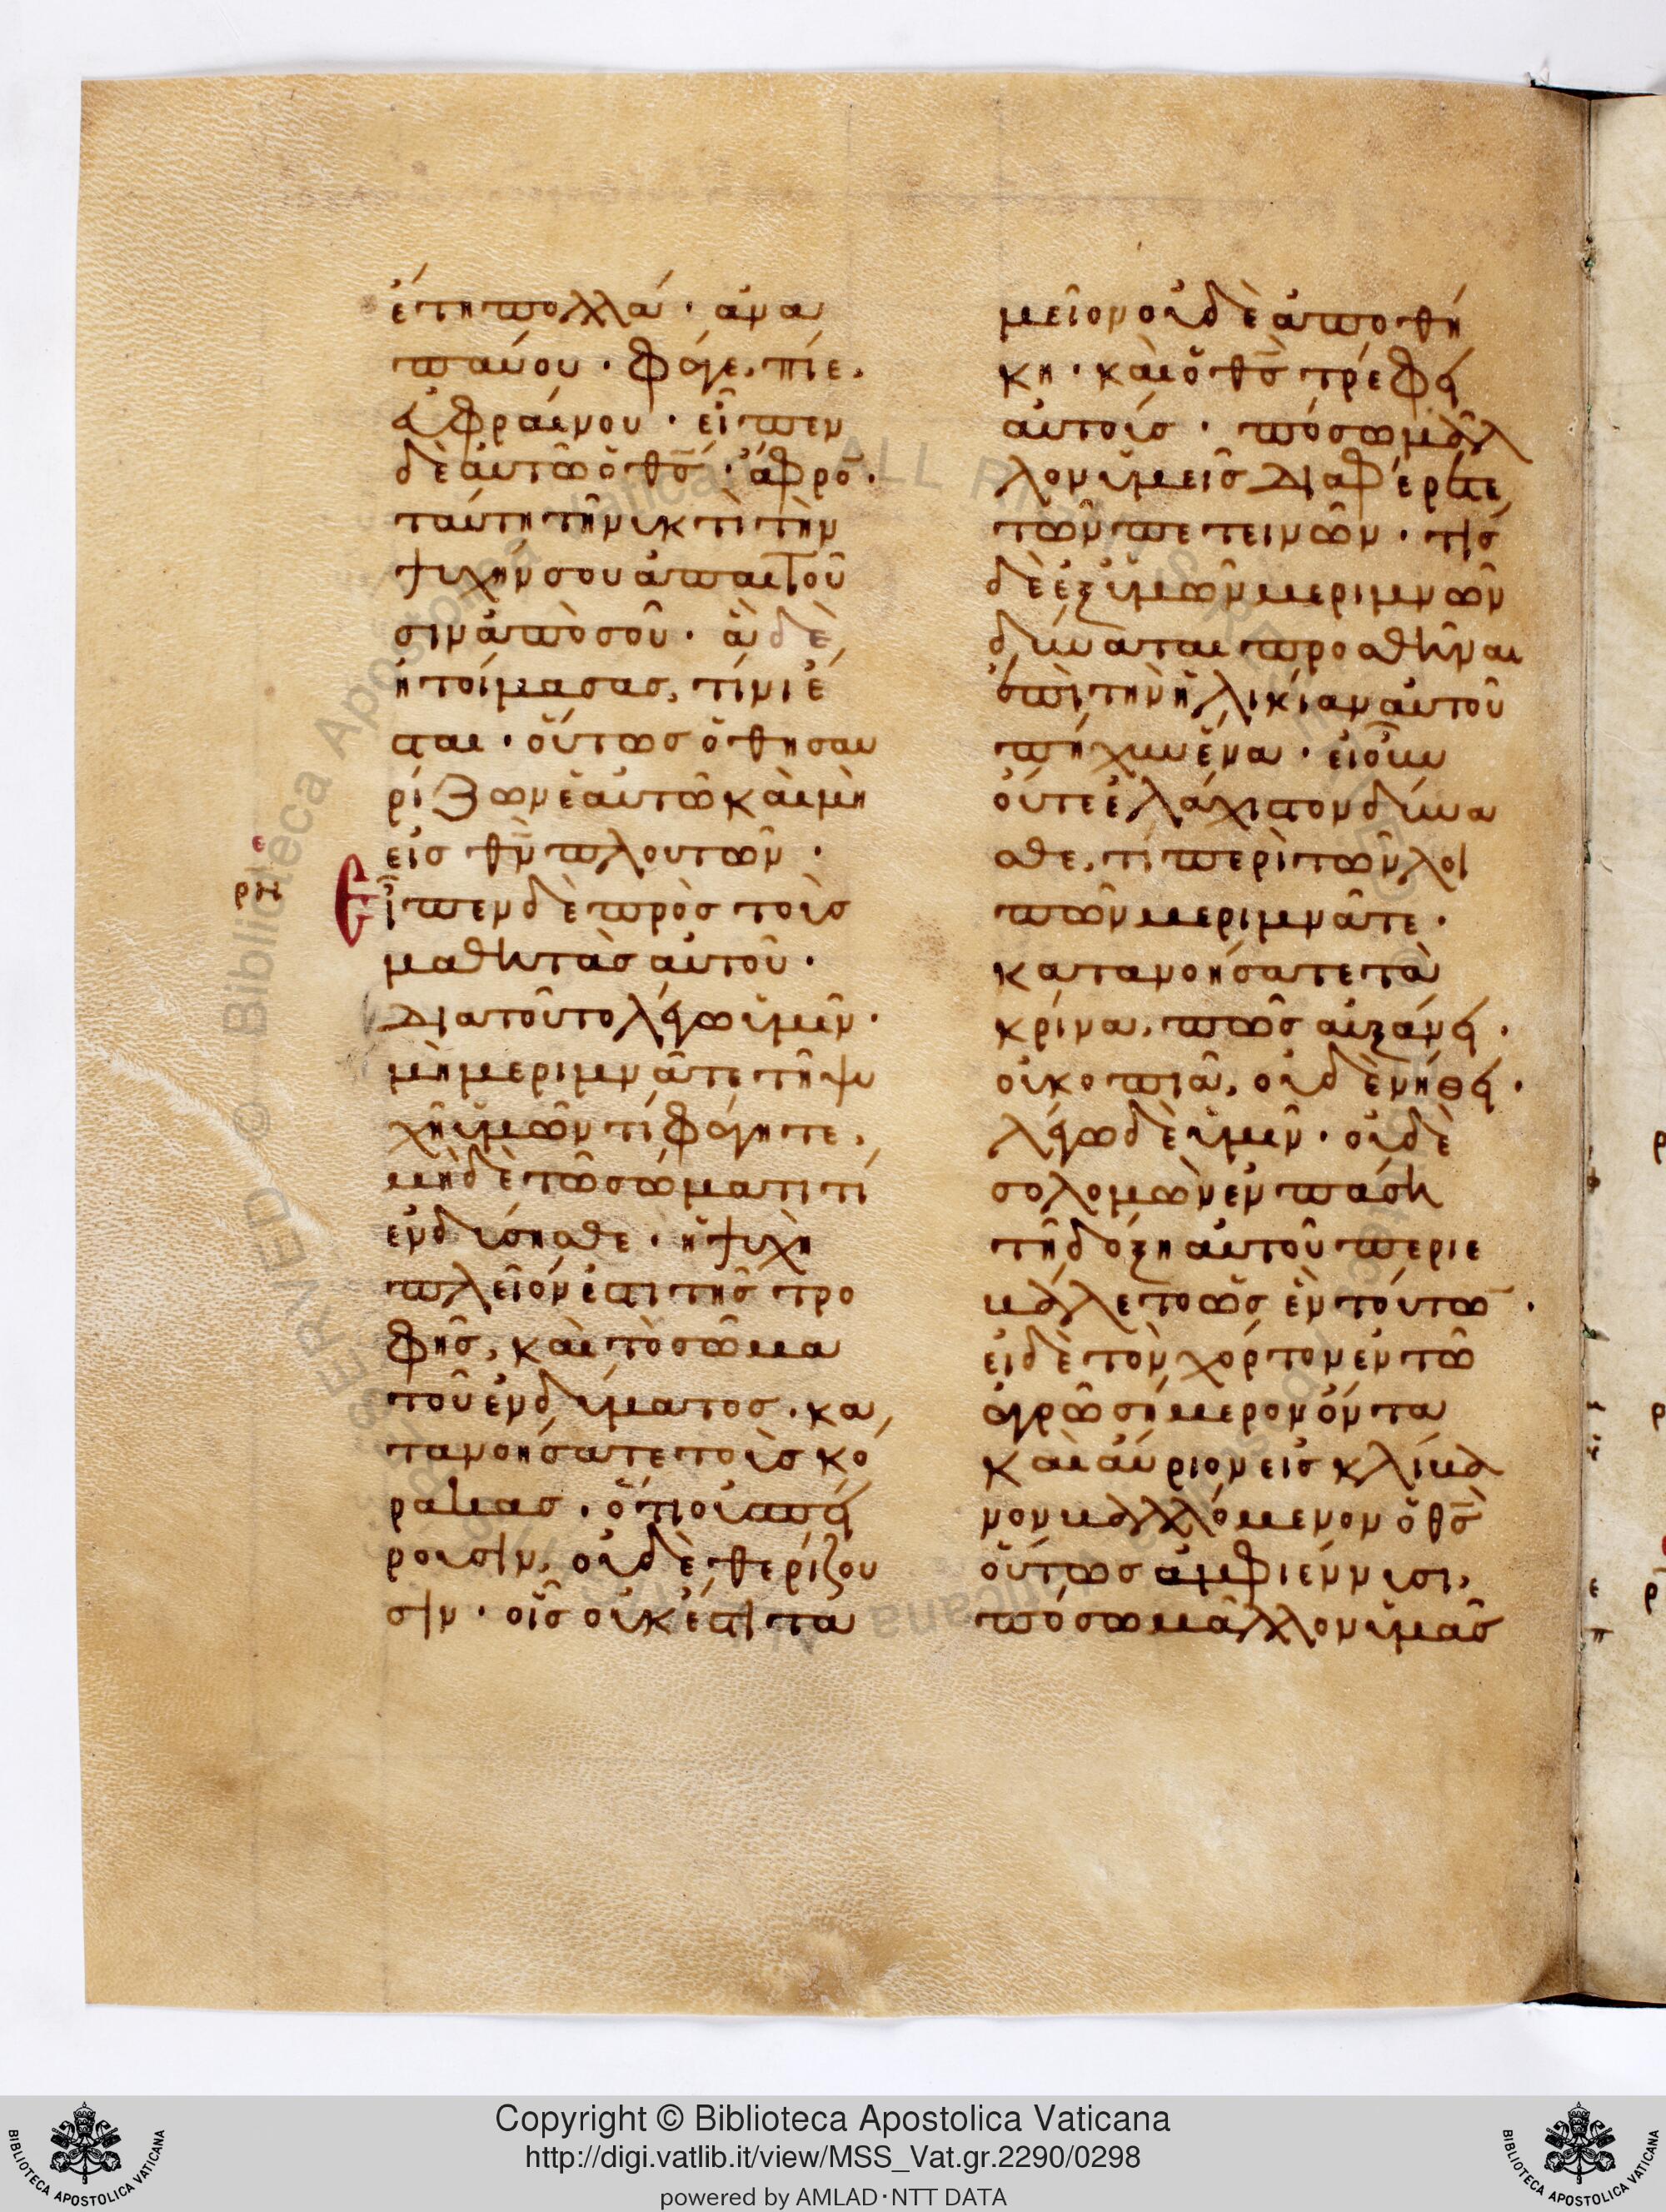 ἔτη πολλά· ἀνα
παύου· φάγε, πίε,
εὐφραίνου· εἶπεν
δὲ αὐτῶ ὁ θ̅ς̅· ἄφρο̅·
ταύτη τῆ νυκτὶ τὴν
ψυχήν σου ἀπαιτοῦ
σιν ἀπὸ σοῦ· ἃ δὲ
ἡτοίμασας, τίνι ἔ
σται· οὕτως ὁ θησαυ
ρίζων ἑαυτῶ καὶ μὴ
εἰς θ̅ν̅ πλουτῶν·
ε
ρν
Εἶπεν δὲ πρὸς τοὺς
μαθητὰς αὐτοῦ·
διατοῦτο λέγω ὑμῖν·
μὴ μεριμνᾶτε τῆ ψυ
χῆ ὑμῶν τί φάγητε,
μὴ δὲ τῶ σώματι τί
ἐνδύσησθε· ἡ ψυχὴ
πλεῖόν ἐστι τῆς τρο
φῆς, καὶ τὸ σῶμα
τοῦ ἐνδύματος· κα
τανοήσατε τοὺς κό
ρακας· ὅτι οὐ σπεί
ρουσιν, οὐδὲ θερίζου
σιν· οἷς οὐκ ἔστι τα
μεῖον οὐδὲ ἀποθή
κη· καὶ ὁ θ̅ς̅ τρέφει
αὐτούς· πόσω μᾶλ
λον ὑμεῖς διαφέρετε
τῶν πετεινῶν· τίς
δὲ ἐξ ὑμῶν μεριμνῶν
δύναται προσθῆναι
ἐπὶ τὴν ἡλικίαν αὐτοῦ
πῆχυν ἕνα· εἰ οὖν
οὔτε ἐλάχιστον δύνα
σθε, τί περὶ τῶν λοι
πῶν μεριμνᾶτε·
κατανοήσατε τὰ
κρίνα, πῶς αὐξάνει·
οὐ κοπιᾶ, οὐδὲ νήθει·
λέγω δὲ ὑμῖν· οὐδὲ
σολομὼν ἐν πάση
τῆ δόξη αὐτοῦ περιε
βάλετο ὡς ἓν τούτω̅·
εἰ δὲ τὸν χόρτον ἐν τῶ
ἀγρῶ σήμερον ὄντα
καὶ αὔριον εἰς κλίβα
νον βαλλόμενον ὁ θ̅ς̅
οὕτως ἀμφιέννυσι,
πόσω μᾶλλον ὑμᾶς
Copyright © Biblioteca Apostolica Vaticana
http://digi.vatlib.it/view/MSS_Vat.gr.2290/0298
powered by AMLAD·NTT DATA
BIBLIOTECA APOSTOLICA VATICANA
BIBLIOTECA APOSTOLICA VATICANA